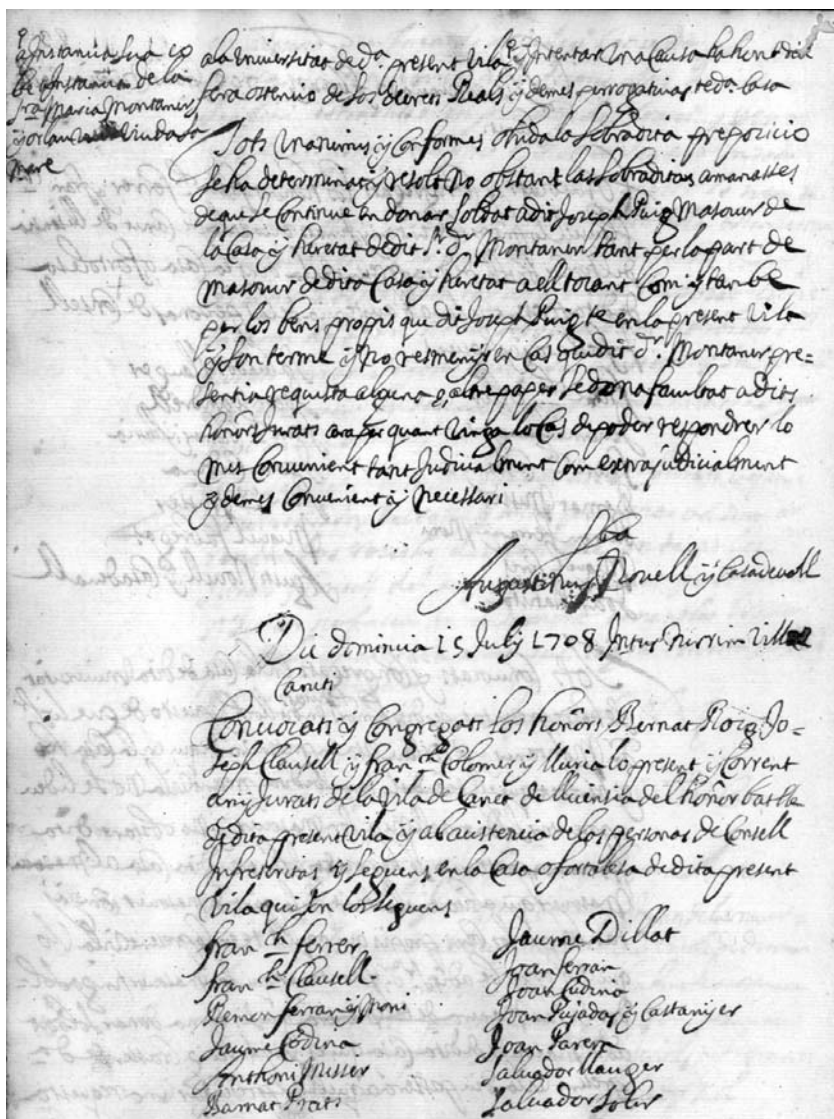 a instancia sua co
be instancia de la
Sra Maria Montaner
y viuda sa
mare
a la universitat de da. present vila y intentar una causa
sera ostencio de sos decrets Reals y demes perrogativas te da. casa
Tots unanimes y conformes ohida la sobradita preposicio
se ha determinat y resolt no obstant las sobraditas amanasses
de que se continue en donar soldat a dit Joseph Puig Masover de
la Casa y heretat de dit Sr. dr. Montaner tant per la part de
masover de dita Casa y heretat a ell tocant com y tambe
per los bens propis que dit Joseph Puig te en la present vila
y son terme y no res menys en cas que dit dr. Montaner pre=
sentia requesta alguna o altre paper se dona facultat a dits
honors. Jurats ara per quant vinga lo cas de poder respondrer lo
mes convenient tant judicialment com extrajudicialment
y demes convenient y necessari
Ita
Augusti Rovell y Casadevall
Die dominica 15 July 1708 Intus Turrim Villa
Caneti
Convocats y Congregats los honors. Bernat Roig Jo=
seph Clausell y Franch. Colomer y Lluria lo present y corrent
any Jurats de la vila de Canet de llicensia del honor. batlle
de dita present vila y ab asistencia de los personas de Consell
infrascritas y seguens en la Casa o fortalesa de dita present
vila qui son los seguens
Franch. Ferrer
Franch. Clausell
Remon Ferran y Moni
Jaume Codina
Anthoni Misser
Barnat Prats
Jaume Dillat
Joan Ferran
Joan Cudina
Joan Pujadas y Castanyer
Joan Parera
Salvador Llauger
Salvador Soler